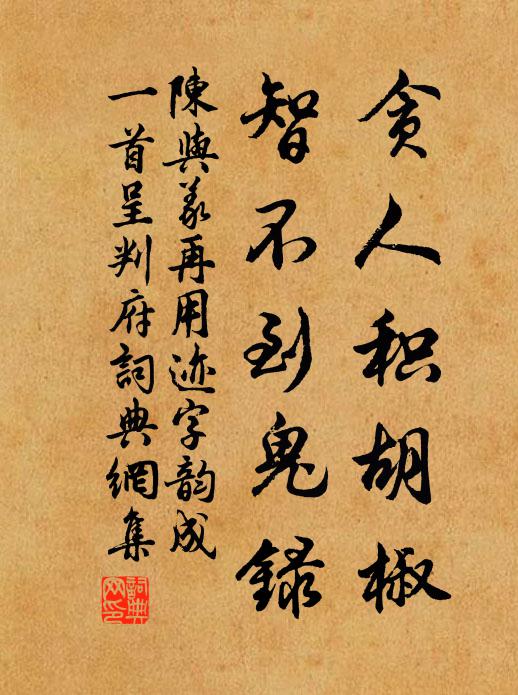 贪人积胡椒
智不到鬼录
陳與義再用迹字韵成
一首呈判府詞典網集
詞典网印